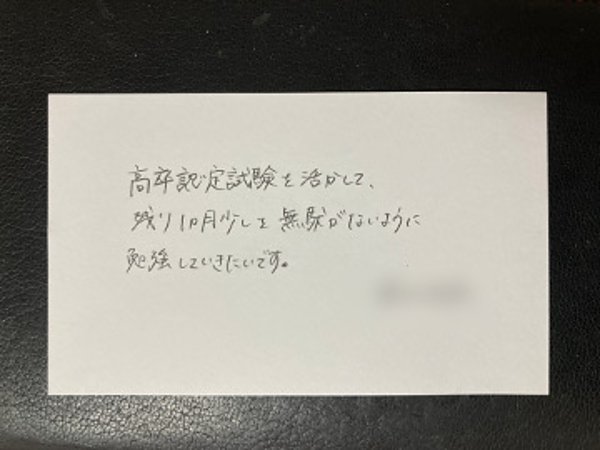 高卒認定試験を活かして、
残り1カ月少しを無駄がないように
勉強していきたいです。